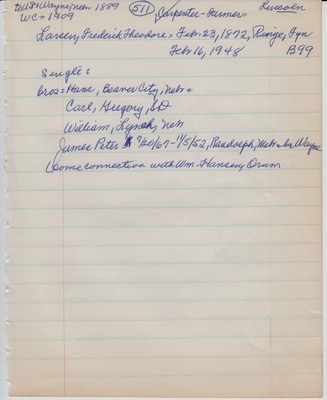 to U.S. Wayne, Nebr 1889 511 Carpenter-Farmer Lincoln
WC - 1909
Larsen, Frederick Theodore: Feb. 23, 1872, Ringe, Fyn
Feb 16, 1948 B99
Single:
bros: Hans, Beaver City, Nebr
Carl, Gregory, SD
William, Lynch, Neb
James Peter 9/20/67-1/5/52, Randolph, Nebr. by Wayne
(some connection with Wm. Hansen, Orum